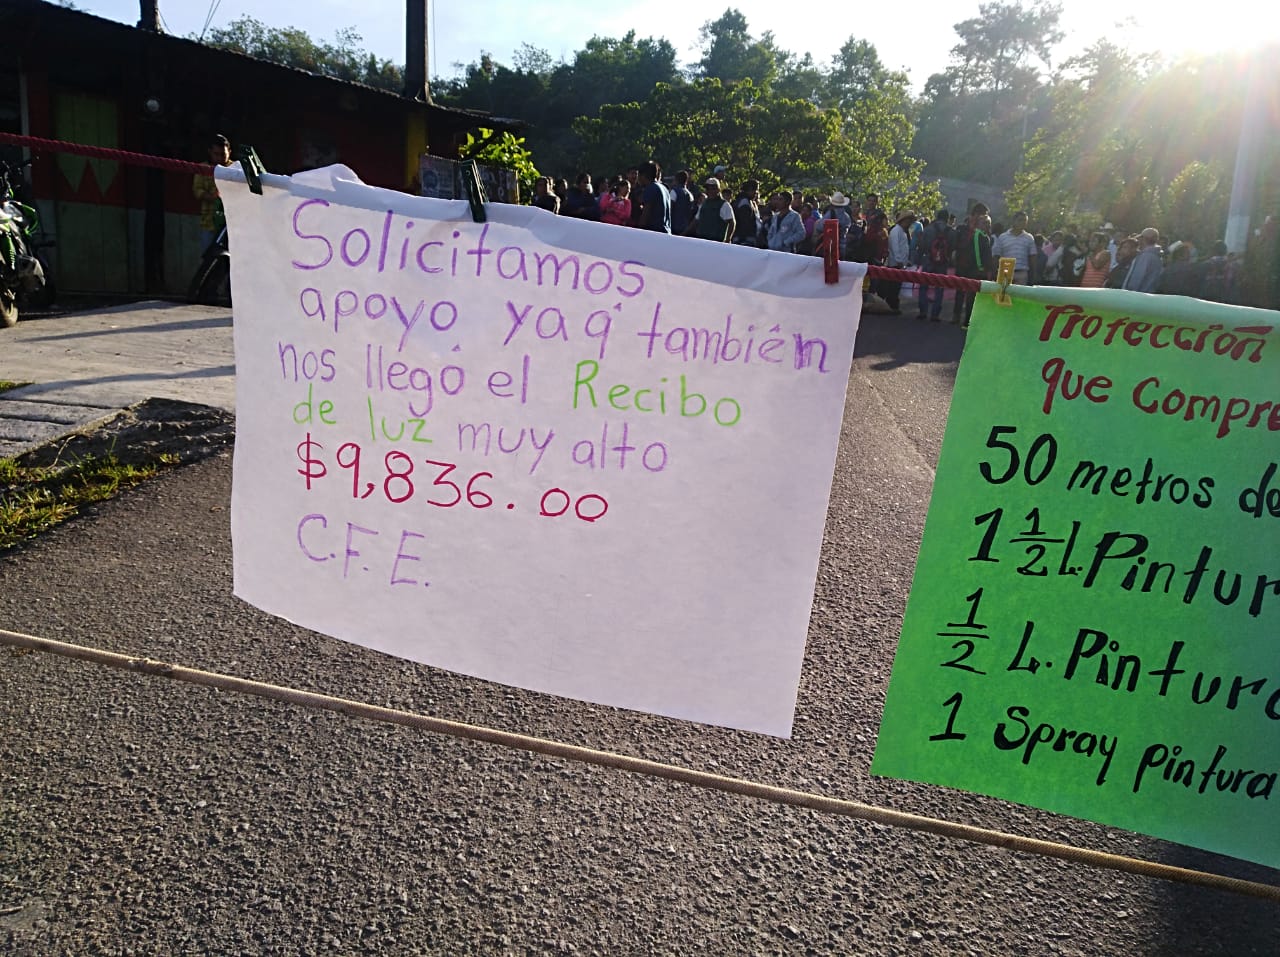 Solicitamos
apoyo yaq' también
nos llegó el Recibo
de luz muy alto
$9,836.00
C.F.E.
Protección
que Compre
50 metros de
1 1/2 L. Pintur
1/2 L. Pintura
1 Spray pintura